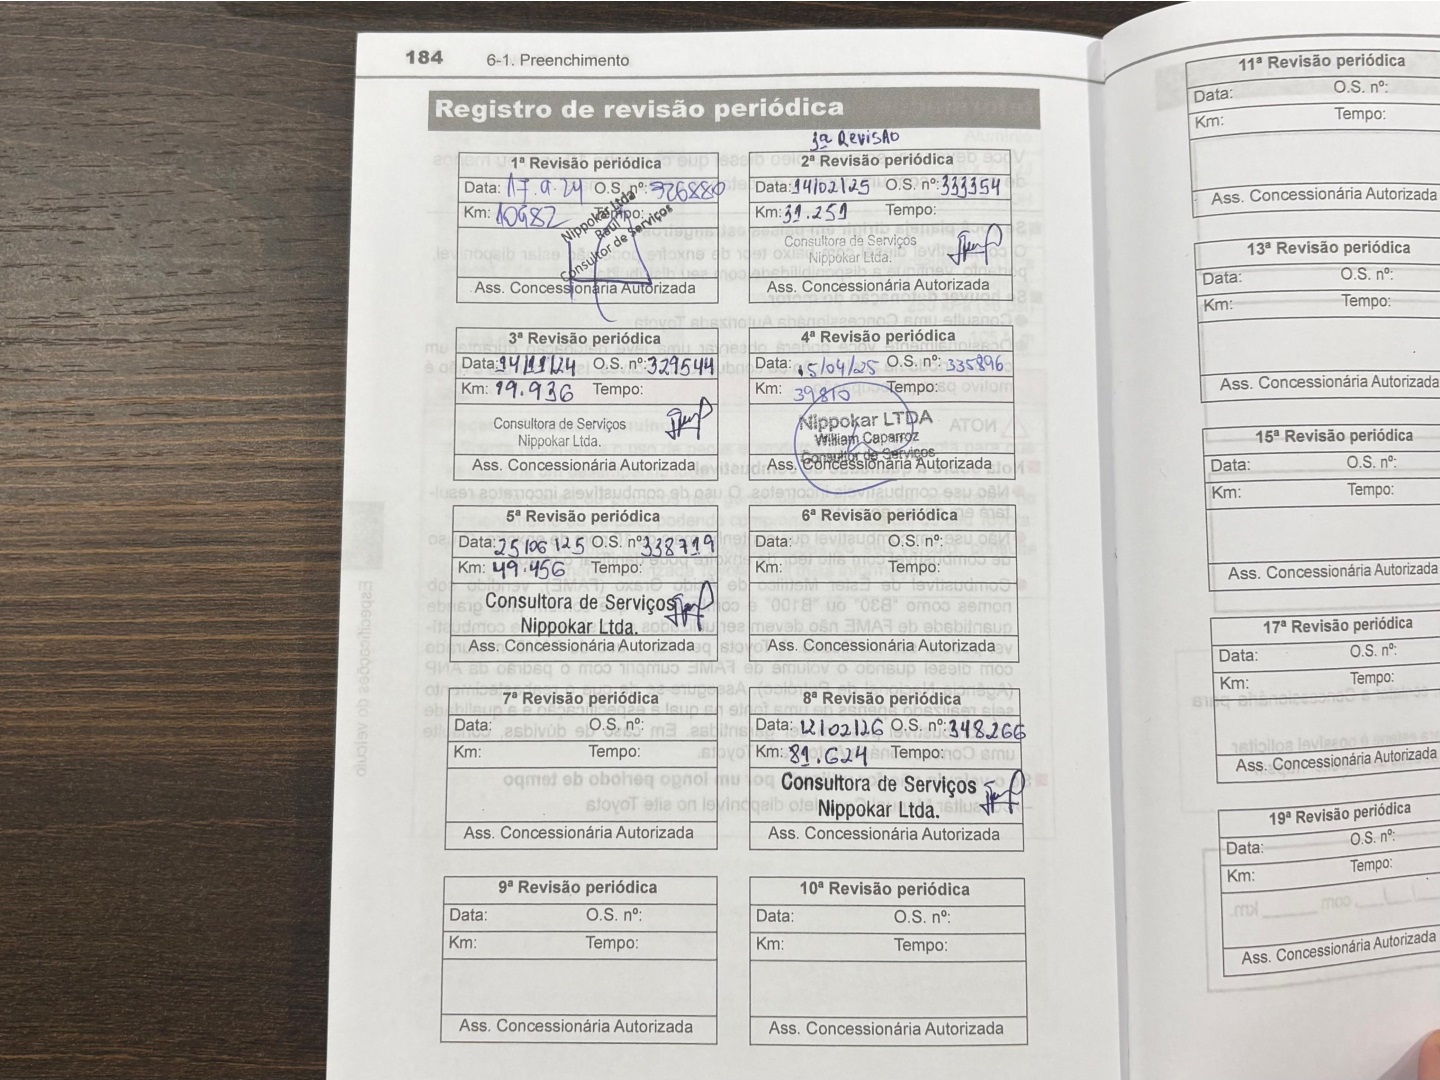 184 6-1. Preenchimento
Registro de revisão periódica
1ª Revisão periódica
Data: 17.9.24 O.S. nº: 326880
Km: 10982 Tempo:
Nippokar Ltda
Raul
Consultor de Serviços
Ass. Concessionária Autorizada
3ª REVISÃO
2ª Revisão periódica
Data: 14/02/25 O.S. nº: 333354
Km: 31.251 Tempo:
Consultora de Serviços
Nippokar Ltda.
Ass. Concessionária Autorizada
3ª Revisão periódica
Data: 14/11/24 O.S. nº: 329544
Km: 19.936 Tempo:
Consultora de Serviços
Nippokar Ltda.
Ass. Concessionária Autorizada
4ª Revisão periódica
Data: 15/04/25 O.S. nº: 335896
Km: 39810 Tempo:
Nippokar LTDA
William Caparroz
Consultor de Serviços
Ass. Concessionária Autorizada
5ª Revisão periódica
Data: 25/06/25 O.S. nº 338719
Km: 49.456 Tempo:
Consultora de Serviços
Nippokar Ltda.
Ass. Concessionária Autorizada
6ª Revisão periódica
Data: O.S. nº:
Km: Tempo:
Ass. Concessionária Autorizada
7ª Revisão periódica
Data: O.S. nº:
Km: Tempo:
Ass. Concessionária Autorizada
8ª Revisão periódica
Data: 12/02/26 O.S. nº: 348266
Km: 81.624 Tempo:
Consultora de Serviços
Nippokar Ltda.
Ass. Concessionária Autorizada
9ª Revisão periódica
Data: O.S. nº:
Km: Tempo:
Ass. Concessionária Autorizada
10ª Revisão periódica
Data: O.S. nº:
Km: Tempo:
Ass. Concessionária Autorizada
11ª Revisão periódica
Data: O.S. nº:
Km: Tempo:
Ass. Concessionária Autorizada
13ª Revisão periódica
Data: O.S. nº:
Km: Tempo:
Ass. Concessionária Autorizada
15ª Revisão periódica
Data: O.S. nº:
Km: Tempo:
Ass. Concessionária Autorizada
17ª Revisão periódica
Data: O.S. nº:
Km: Tempo:
Ass. Concessionária Autorizada
19ª Revisão periódica
Data: O.S. nº:
Km: Tempo:
Ass. Concessionária Autorizada